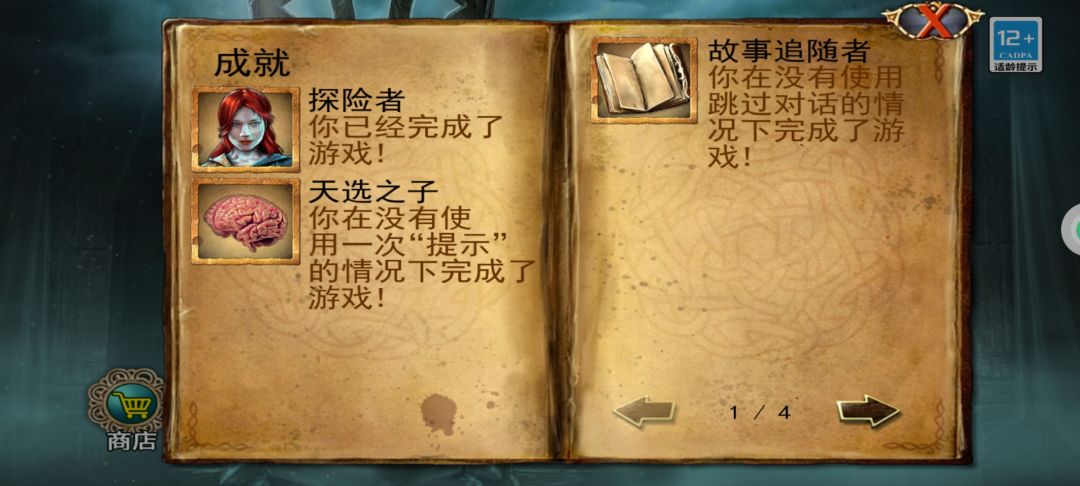 成就
探险者
你已经完成了
游戏！
天选之子
你在没有使
用一次“提示”
的情况下完成了
游戏！
故事追随者
你在没有使用
跳过对话的情
况下完成了游
戏！
1 / 4
12+
CADPA
适龄提示
商店